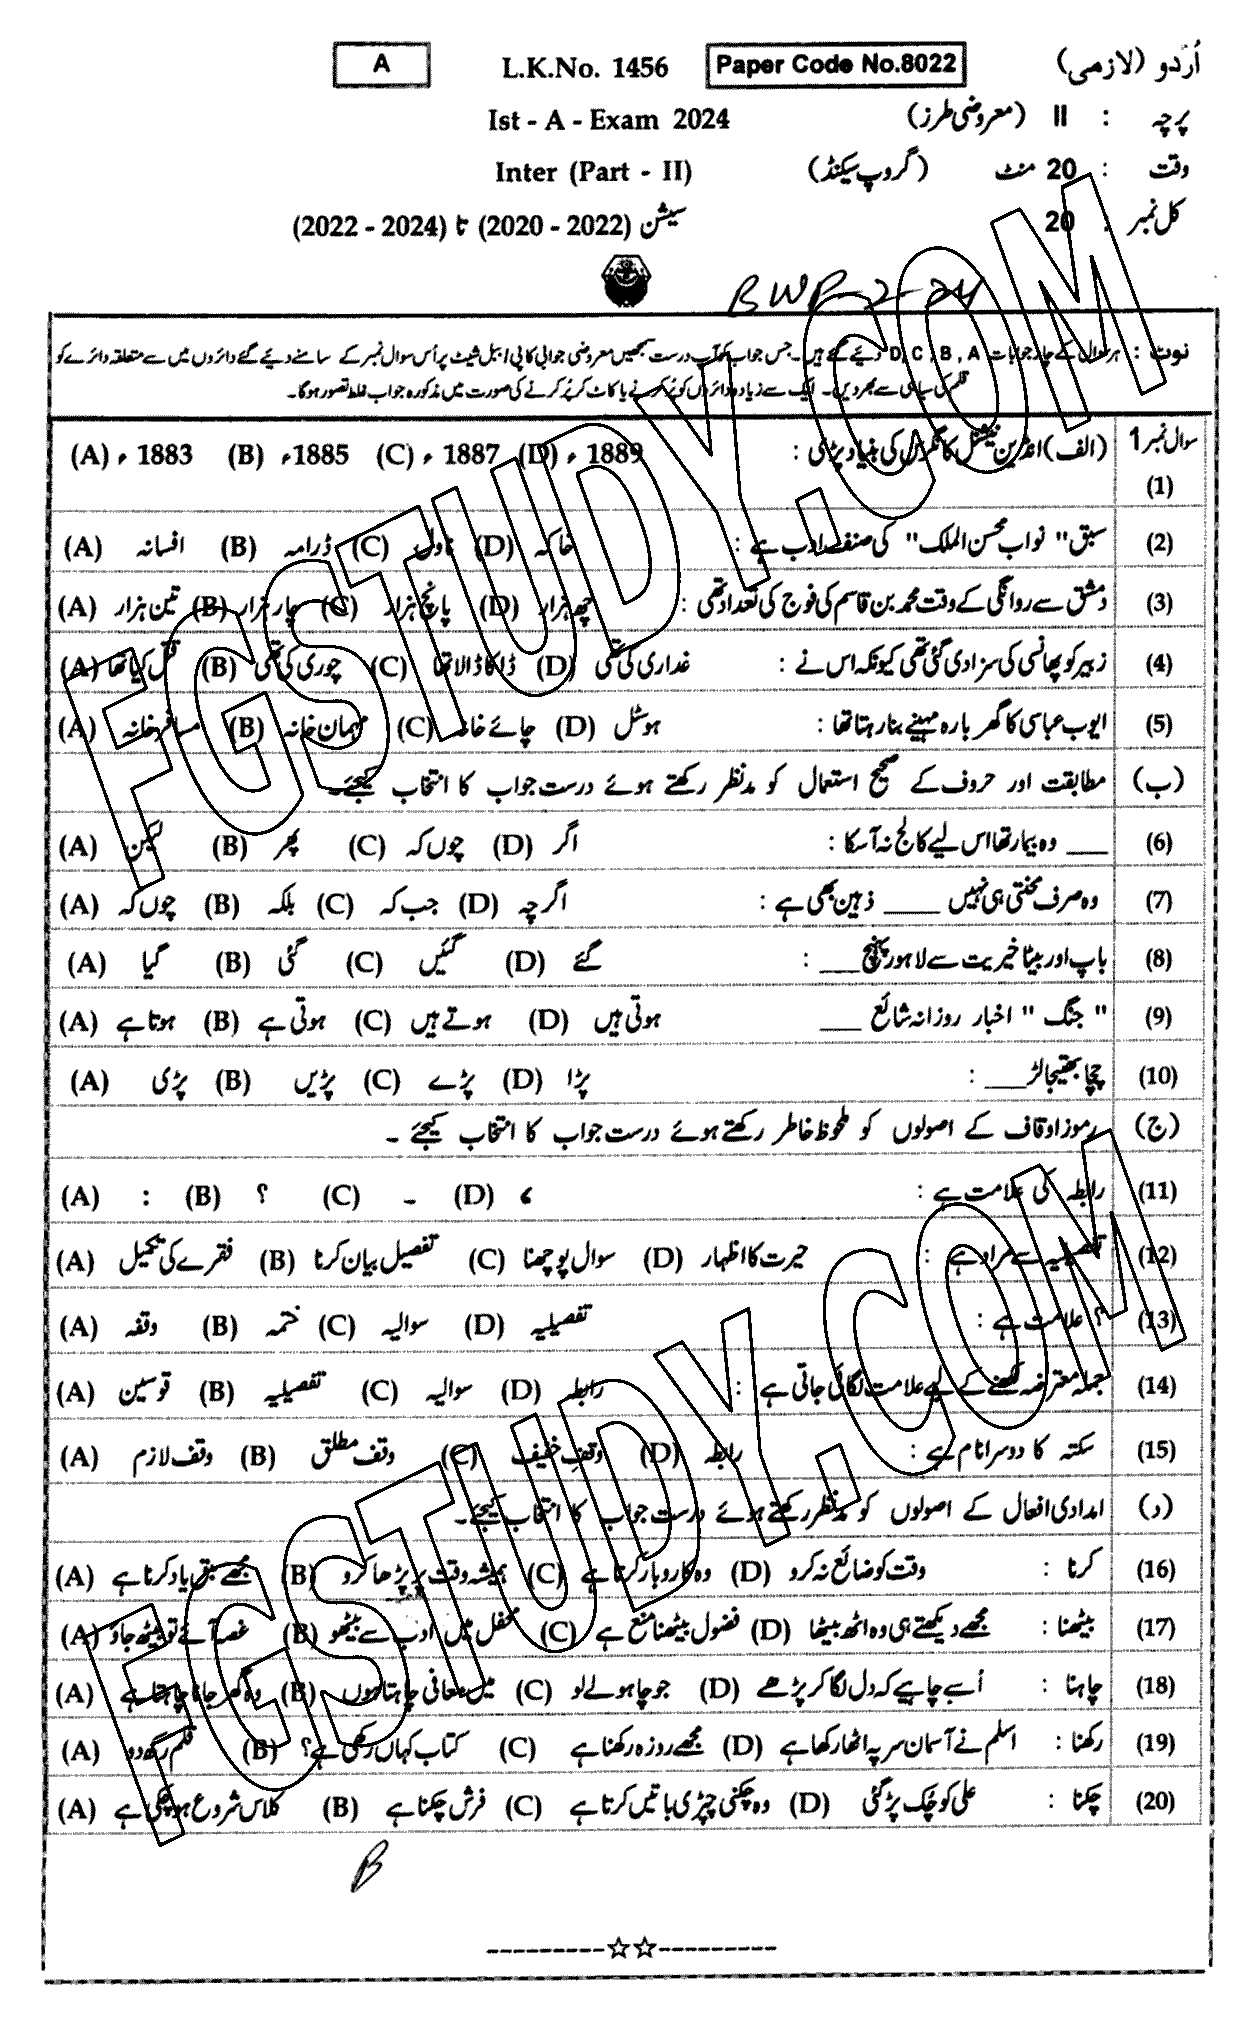 اُردو (لازمی) Paper Code No.8022 L.K.No. 1456 A
پرچہ : II (معروضی طرز) Ist - A - Exam 2024
وقت : 20 منٹ (گروپ سیکنڈ) Inter (Part - II)
کل نمبر : 20 سیشن (2020 - 2022) تا (2022 - 2024)
BWP-2-24
نوٹ : ہر سوال کے چار جوابات D, C, B, A دئیے گئے ہیں۔ جس جواب کو آپ درست سمجھیں معروضی جوابی کاپی / ببل شیٹ پر اُس سوال نمبر کے سامنے دئیے گئے دائروں میں سے متعلقہ دائرے کو
قلم کی سیاہی سے بھر دیں۔ ایک سے زیادہ دائروں کو پُر کرنے یا کاٹ کر پُر کرنے کی صورت میں مذکورہ جواب غلط تصور ہوگا۔
سوال نمبر 1 (الف) انڈین نیشنل کانگرس کی بنیاد پڑی : (A) 1883ء (B) 1885ء (C) 1887ء (D) 1889ء
(1)
(2) سبق "نواب محسن الملک" کی صنفِ ادب ہے : (A) افسانہ (B) ڈرامہ (C) ناول (D) خاکہ
(3) دمشق سے روانگی کے وقت محمد بن قاسم کی فوج کی تعداد تھی : (A) تین ہزار (B) چار ہزار (C) پانچ ہزار (D) چھ ہزار
(4) زبیر کو پھانسی کی سزا دی گئی تھی کیونکہ اس نے : (A) قتل کیا تھا (B) چوری کی تھی (C) ڈاکا ڈالا تھا (D) غداری کی تھی
(5) ایوب عباسی کا گھر بارہ مہینے بنا رہتا تھا : (A) مسافر خانہ (B) مہمان خانہ (C) چائے خانہ (D) ہوسٹل
(ب) مطابقت اور حروف کے صحیح استعمال کو مدنظر رکھتے ہوئے درست جواب کا انتخاب کیجئے۔
(6) ___ وہ بیمار تھا اس لیے کالج نہ آسکا : (A) لیکن (B) پھر (C) چوں کہ (D) اگر
(7) وہ صرف محنتی ہی نہیں ____ ذہین بھی ہے : (A) چوں کہ (B) بلکہ (C) جب کہ (D) اگرچہ
(8) باپ اور بیٹا خیریت سے لاہور پہنچ ___ : (A) گیا (B) گئی (C) گئیں (D) گئے
(9) "جنگ" اخبار روزانہ شائع ___ (A) ہوتا ہے (B) ہوتی ہے (C) ہوتے ہیں (D) ہوتی ہیں
(10) چچا بھتیجا لڑ ___ : (A) پڑی (B) پڑیں (C) پڑے (D) پڑا
(ج) رموز اوقاف کے اصولوں کو ملحوظ خاطر رکھتے ہوئے درست جواب کا انتخاب کیجئے ۔
(11) رابطہ کی علامت ہے : (A) : (B) ؟ (C) ۔ (D) ،
(12) تفصیلیہ سے مراد ہے : (A) فقرے کی تکمیل (B) تفصیل بیان کرنا (C) سوال پوچھنا (D) حیرت کا اظہار
(13) ؟ علامت ہے : (A) وقفہ (B) ختمہ (C) سوالیہ (D) تفصیلیہ
(14) جملہ معترضہ لکھنے کے لیے علامت لگائی جاتی ہے : (A) قوسین (B) تفصیلیہ (C) سوالیہ (D) رابطہ
(15) سکتہ کا دوسرا نام ہے : (A) وقف لازم (B) وقف مطلق (C) وقفِ خفیف (D) رابطہ
(د) امدادی افعال کے اصولوں کو مدنظر رکھتے ہوئے درست جواب کا انتخاب کیجئے۔
(16) کرنا : (A) مجھے سبق یاد کرنا ہے (B) ہمیشہ وقت پر پڑھا کرو (C) وہ کاروبار کرتا ہے (D) وقت کو ضائع نہ کرو
(17) بیٹھنا : (A) غصہ آئے تو بیٹھ جاؤ (B) محفل میں ادب سے بیٹھو (C) فضول بیٹھنا منع ہے (D) مجھے دیکھتے ہی وہ اٹھ بیٹھا
(18) چاہنا : (A) وہ گھر جانا چاہتا ہے (B) میں معافی چاہتا ہوں (C) جو چاہو لے لو (D) اُسے چاہیے کہ دل لگا کر پڑھے
(19) رکھنا : (A) قلم رکھ دو (B) کتاب کہاں رکھی ہے؟ (C) مجھے روزہ رکھنا ہے (D) اسلم نے آسمان سر پہ اٹھا رکھا ہے
(20) چکنا : (A) کلاس شروع ہوچکی ہے (B) فرش چکنا ہے (C) وہ چکنی چپڑی باتیں کرتا ہے (D) علی کو چُک پڑ گئی
B
FGSTUDY.COM
FGSTUDY.COM